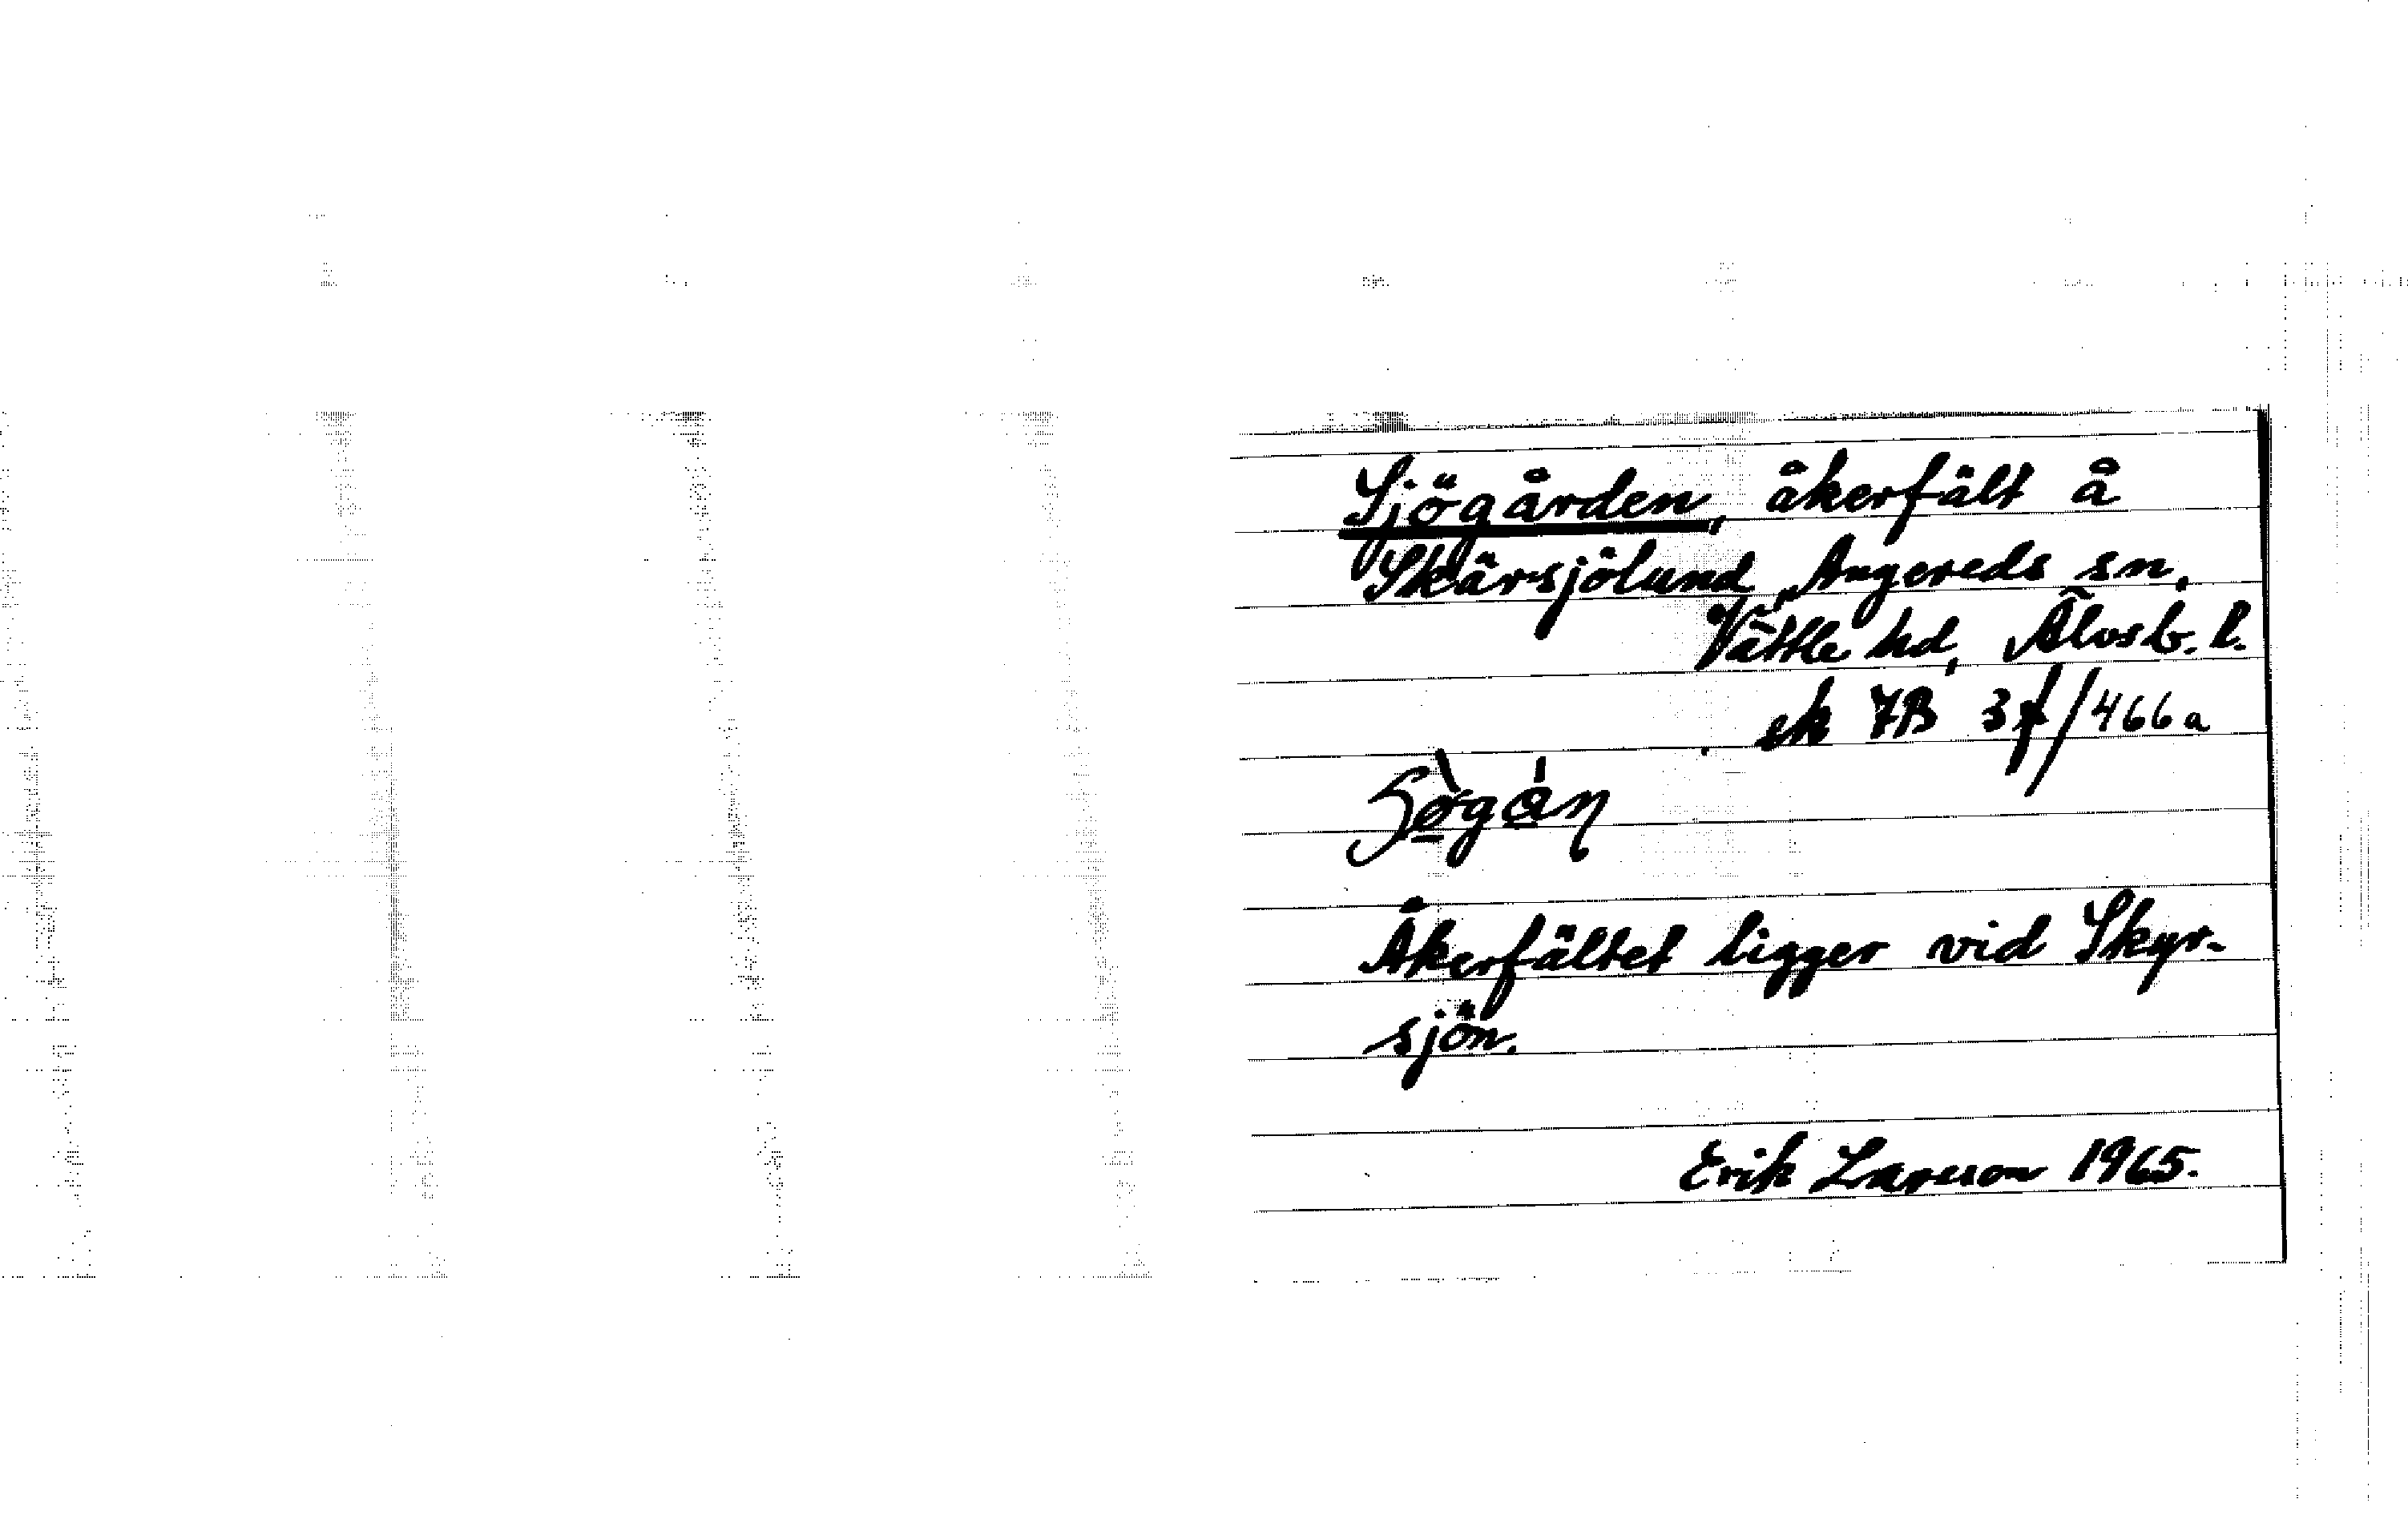 Sjögården, åkerfält å
Skärsjölund, Angereds sn,
Vättle hd, Älvsb. l.
ek 7B 3f/466a
Åkerfältet ligger vid Skyr-
sjön.
Erik Larsson 1965.